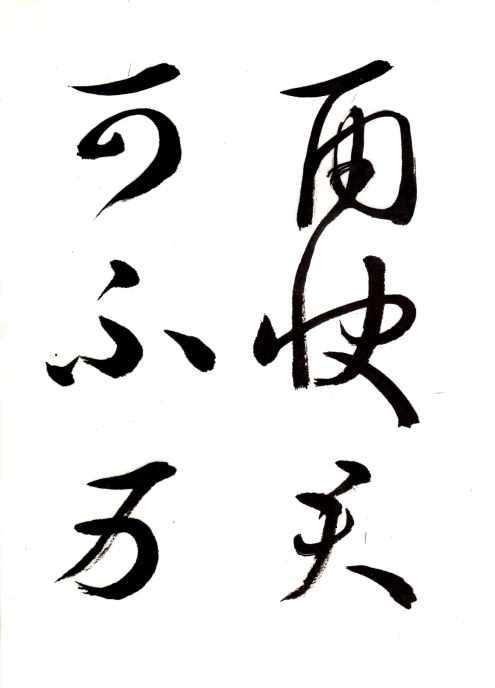 雨快天
可不万